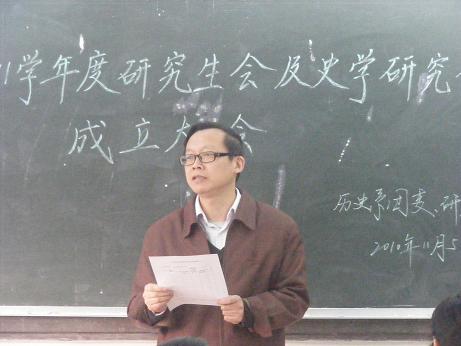 学年度研究生会及史学研究
成立大会
历史系团委、研
2010年11月5